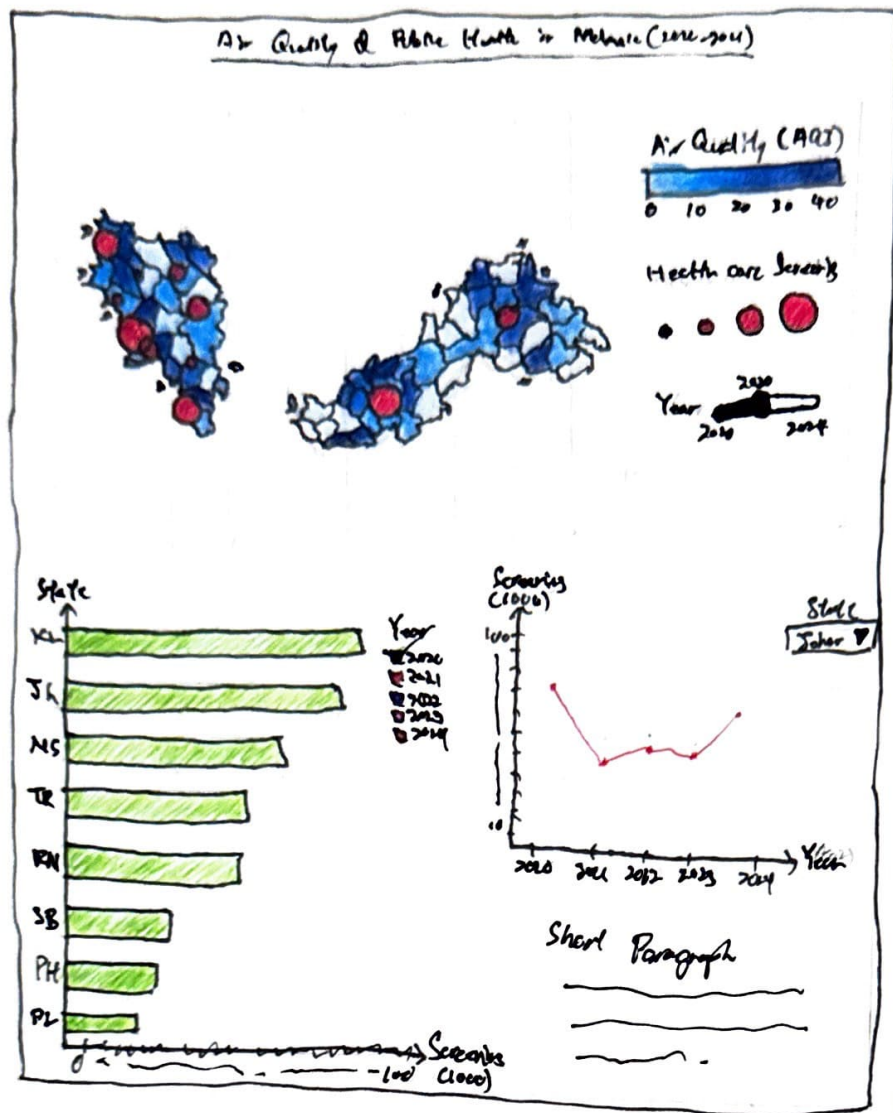 Air Quality & Public Health in Malaysia (2020-2024)
Air Quality (AQI)
0 10 20 30 40
Health care
Year
2020
2020 2024
State
KL
JH
NS
TR
SB
PH
PL
0
100
(1000)
Year
2020
2021
2022
2023
2024
Screenings
(1000)
100
10
2020 2021 2022 2023 2024
Year
State
Johor
Short Paragraph